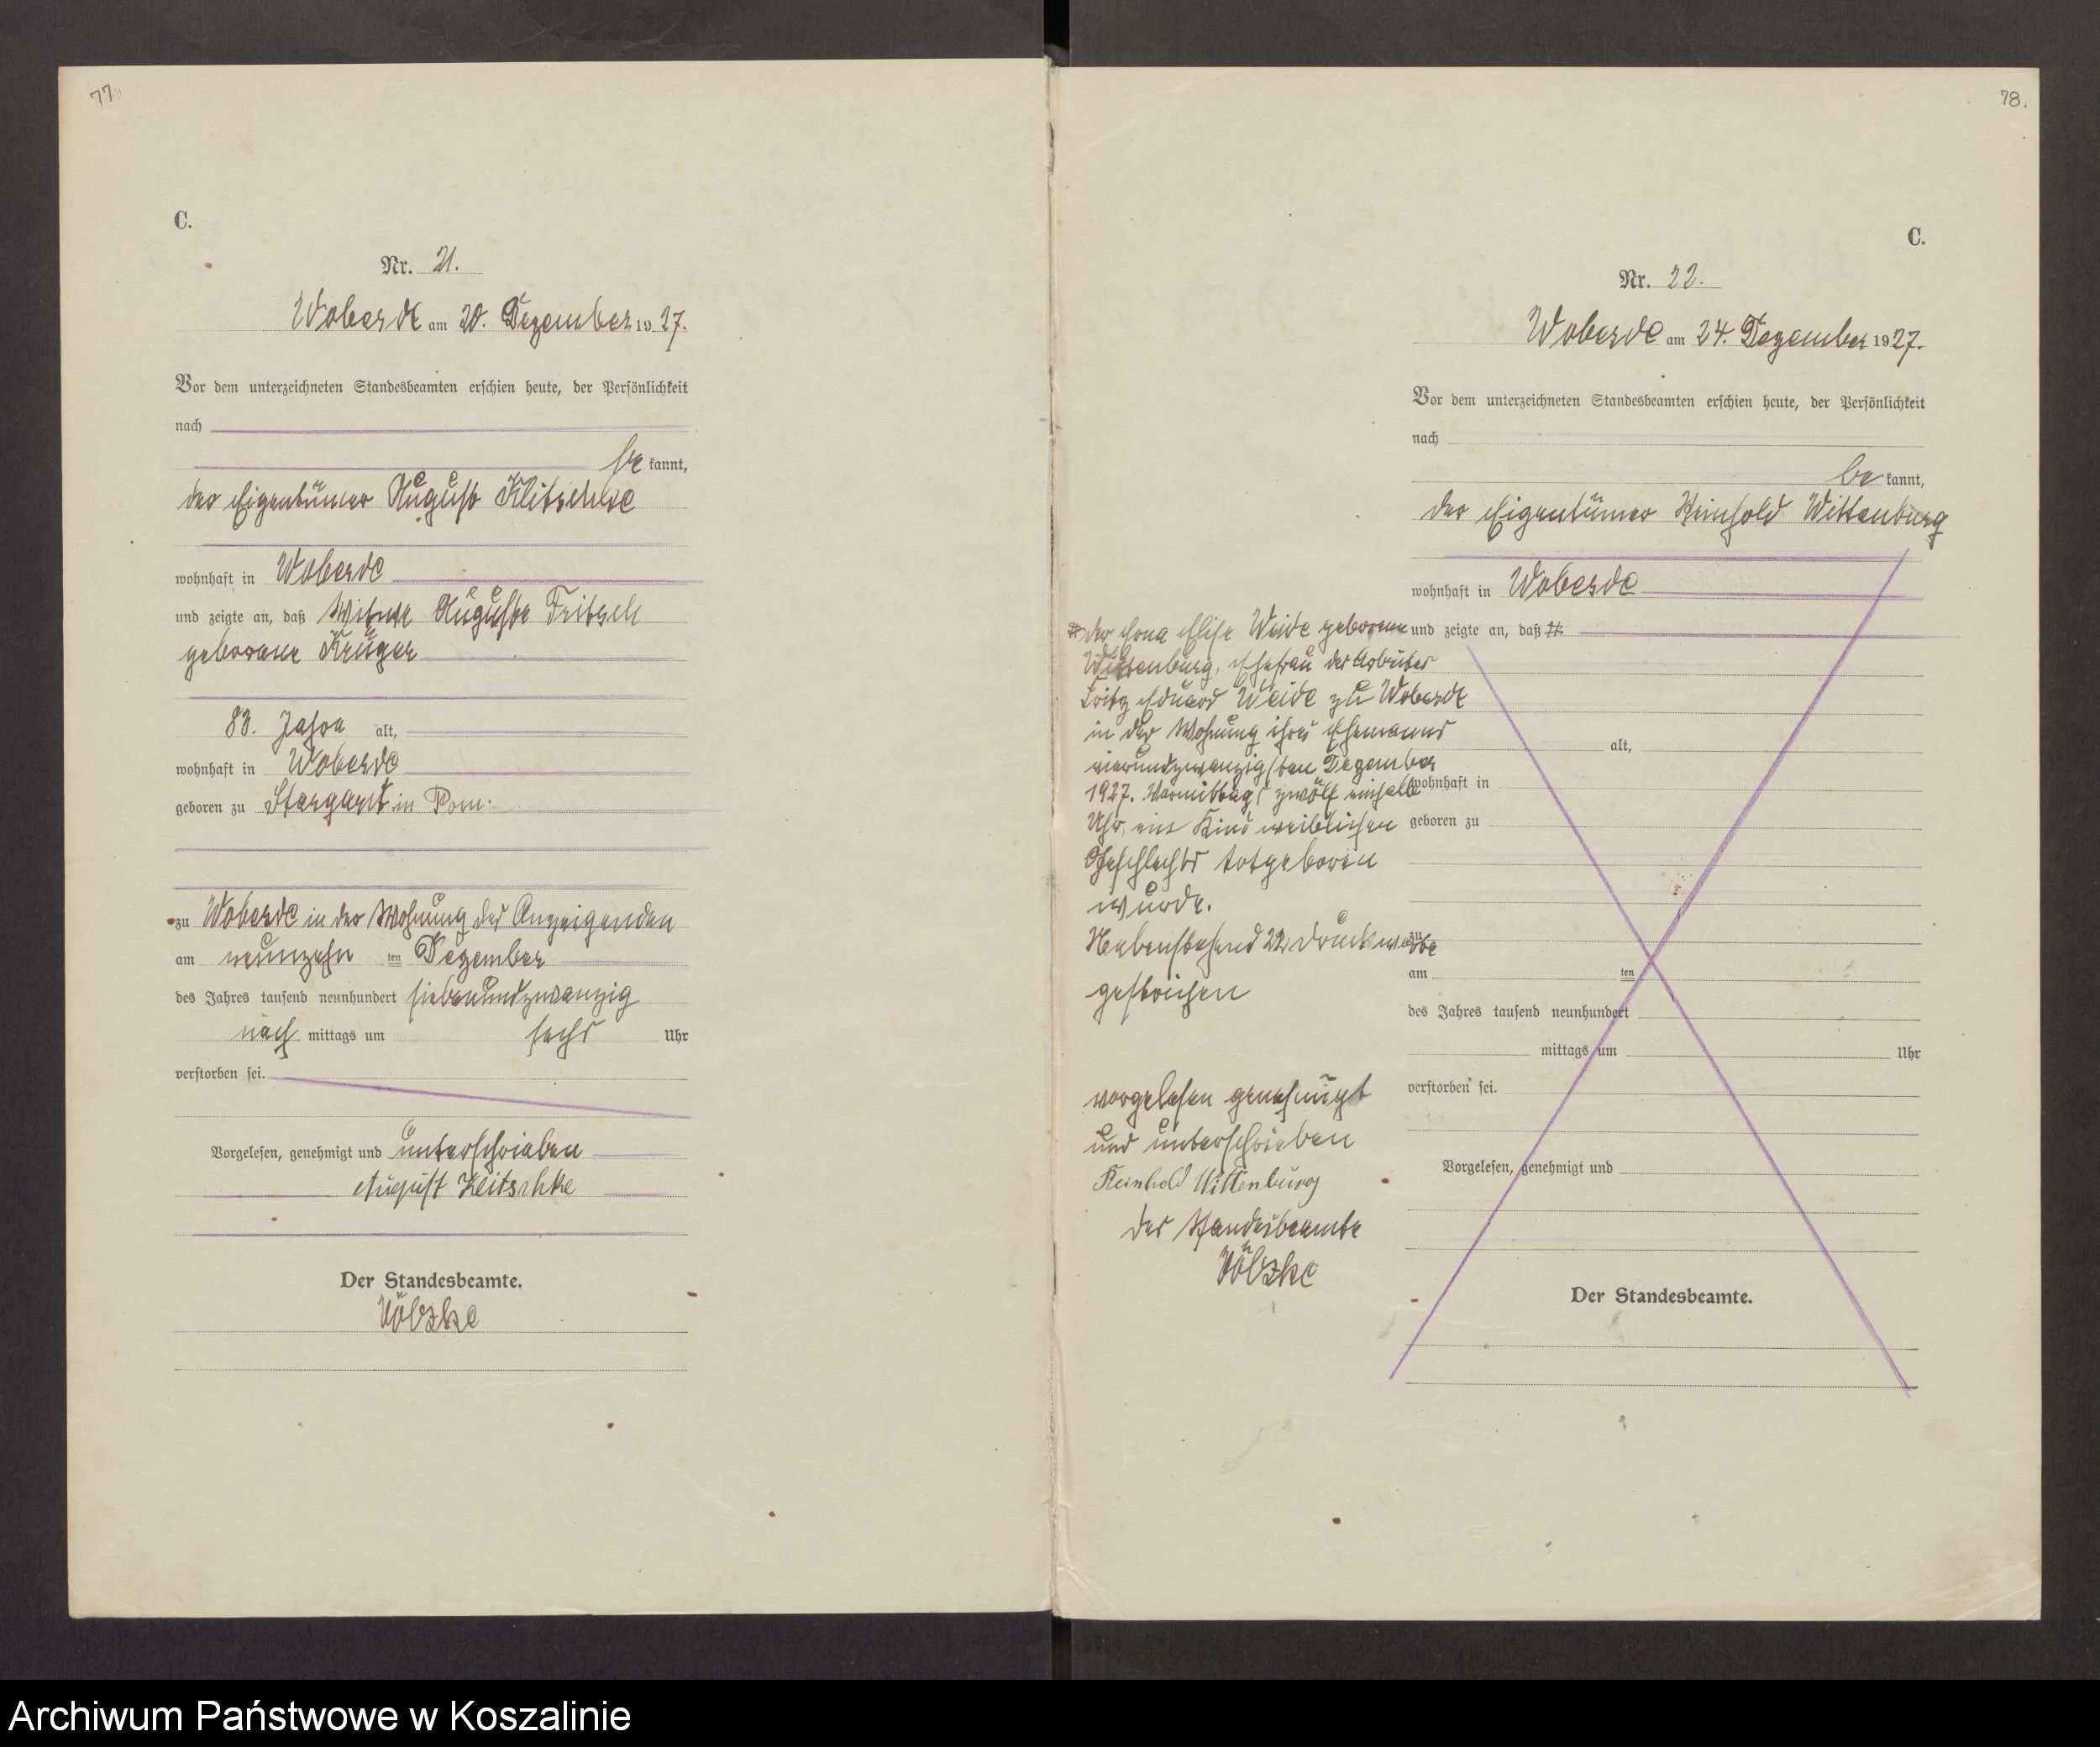 77
C.
Nr. 21.
Woberde am 20. Dezember 1927.
Vor dem unterzeichneten Standesbeamten erschien heute, der Persönlichkeit
nach
be kannt,
der Eigentümer August Klitschke
wohnhaft in Woberde
und zeigte an, daß Witwe Auguste Fritsch
geborene Krüger
83. Jahre alt,
wohnhaft in Woberde
geboren zu Stargard in Pom.
zu Woberde in der Wohnung des Anzeigenden
am neunzehn ten Dezember
des Jahres tausend neunhundert siebenundzwanzig
nach mittags um sechs Uhr
verstorben sei.
Vorgelesen, genehmigt und unterschrieben
August Klitschke
Der Standesbeamte.
Völzke
78.
C.
Nr. 22.
Woberde am 24. Dezember 1927.
Vor dem unterzeichneten Standesbeamten erschien heute, der Persönlichkeit
nach
be kannt,
der Eigentümer Reinhold Wittenburg
wohnhaft in Woberde
und zeigte an, daß #
alt,
wohnhaft in
geboren zu
zu
am ten
des Jahres tausend neunhundert
mittags um Uhr
verstorben sei.
Vorgelesen, genehmigt und
Der Standesbeamte.
# der Erna Elise Weide geborene
Wittenburg, Ehefrau des Arbeiter
Fritz Eduard Weide zu Woberde
in der Wohnung ihres Ehemanns
vierundzwanzigsten Dezember
1927. Vormittags zwölf einhalb
Uhr, ein Kind weiblichen
Geschlechts totgeboren
wurde.
Nebenstehend 22 Druckworte
gestrichen
vorgelesen genehmigt
und unterschrieben
Reinhold Wittenburg
Der Standesbeamte
Völzke
Archiwum Państwowe w Koszalinie